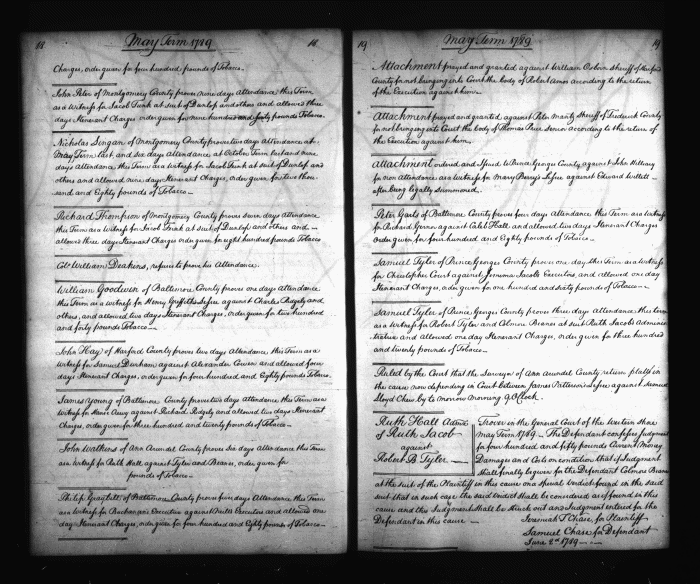 18 May Term 1789 18
Charges, order given for four hundred pounds of Tobacco.
John Peter of Montgomery County proves nine days attendance this Term
as a Witness for Jacob Funk at suit of Dunlop and others and allowed three
days Itenerant Charges order given for nine hundred and forty pounds Tobacco.
Nicholas of Montgomery County proves ten days attendance at
May Term last and six days attendance at October Term last and nine
days attendance this Term as a Witness for Jacob Funk at suit of Dunlop and
others and allowed nine days Itenerant Charges, order given for two thou-
sand and Eighty pounds of Tobacco
Richard Thompson of Montgomery County proves seven days attendance
this Term as a Witness for Jacob Funk at suit of Dunlop and others and
allowed three days Itenerant Charges order given for eight hundred pounds Tobacco
Colo William Deakins, refuses to prove his Attendance.
William Goodwin of Baltimore County proves one days attendance
this Term as a Witness for Henry Griffiths Lessee against Charles Ridgely and
others, and allowed two days Itenerant Charges, order given for two hundred
and forty pounds Tobacco
John Hay of Harford County proves two days attendance this Term as a
Witness for Samuel Durham against Alexander Cowan and allowed four
days Itenerant Charges, order given for four hundred and Eighty pounds Tobacco.
James Young of Baltimore County proves two days attendance this Term as a
Witness for against Richard Ridgely and allowed two days Itenerant
Charges, order given for three hundred and twenty pounds of Tobacco
John Watkins of Ann Arundel County proves six days attendance this Term
as a Witness for Ruth Hall against Tyler and Beanes, order given for
pounds of Tobacco
Philip Graybill of Baltimore County proves four days Attendance this Term
as a Witness for Buchanan's Executrix against Executors and allowed two
days Itenerant Charges, order given for four hundred and Eighty pounds of Tobacco
19 May Term 1789 19
Attachment prayed and granted against William Osborn Sheriff of Harford
County for not bringing into Court the body of Robert Amos according to the return
of the Execution against him.
Attachment prayed and granted against Peter Mantz Sheriff of Frederick County
for not bringing into Court the body of Thomas Price Senior according to the return of
the Execution against him.
Attachment ordered and Issued to Prince Georges County against John Hillary
for non attendance as a Witness for Mary Berry's Lessee against Edward Willett
after being legally summoned.
Peter of Baltimore County proves four days attendance this Term as a Witness
for Richard against Caleb Hall and allowed two days Itenerant Charges
order given for four hundred and Eighty pounds of Tobacco
Samuel Tyler of Prince Georges County proves one day this Term as a Witness
for Christopher Court against Jemima Jacobs Executors and allowed one day
Itenerant Charges, order given for one hundred and sixty pounds of Tobacco
Samuel Tyler of Prince Georges County proves three days attendance this term
as a Witness for Robert Tyler and Colmore Beanes at suit Ruth Jacob
and allowed one day Itenerant Charges, order given for three hundred
and twenty pounds of Tobacco
Ruled by the Court that the Surveyor of Ann Arundel County return plats in
the cause now depending in Court between James Pattison's Lessee against Samuel
Lloyd Chew by to morrow Morning 9 O'Clock.
Ruth Hall Admx
of Ruth Jacob
against
Robert B. Tyler
Trover in the General Court of the Western Shore
May Term 1789 The Defendant confesses Judgment
for four hundred and fifty pounds Current Money
Damages and Costs on condition that if Judgment
shall finally be given for the Defendant Colmore Beanes
at the suit of the Plaintiff in this cause on a special Verdict found in the said
suit that in such case the said Verdict Shall be considered as if found in this
cause and the Judgment shall be struck out and Judgment entered for the
Defendant in this cause
Jeremiah T. Chase, for Plaintiff
Samuel Chase for Defendant
June 2d 1789